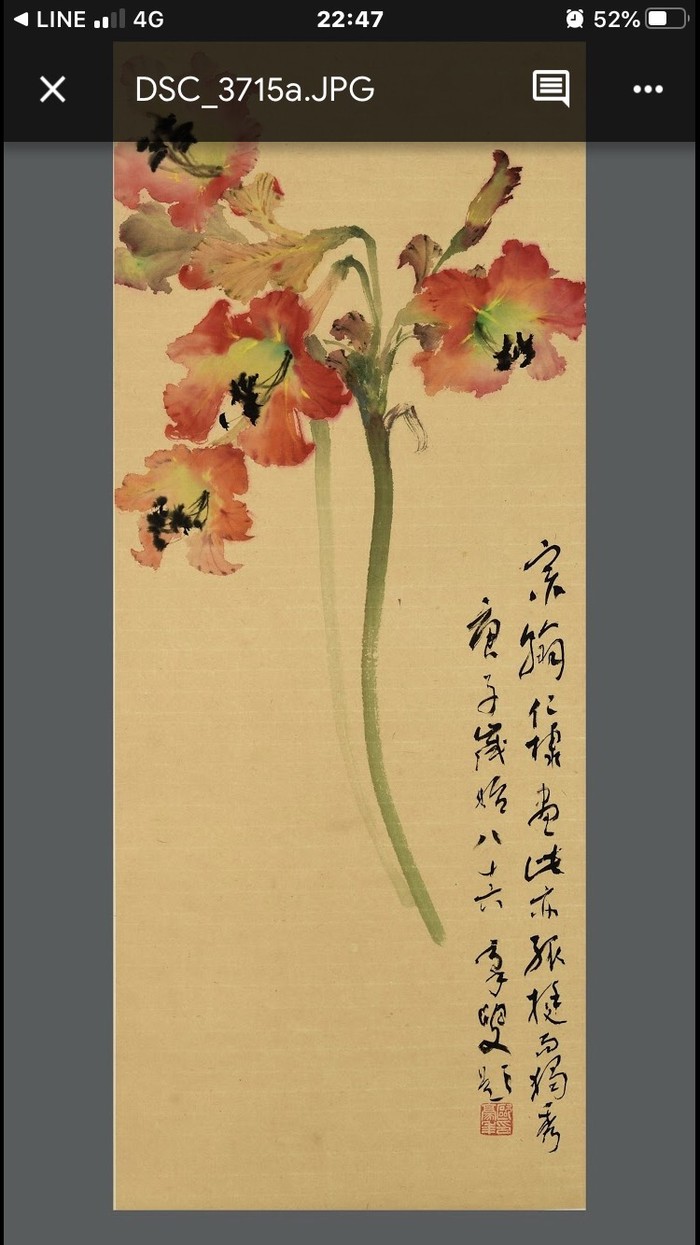 LINE 4G 22:47 52%
DSC_3715a.JPG
宗翰仁棣畫此亦孤挺而獨秀
庚子歲始八十六 豪叟題